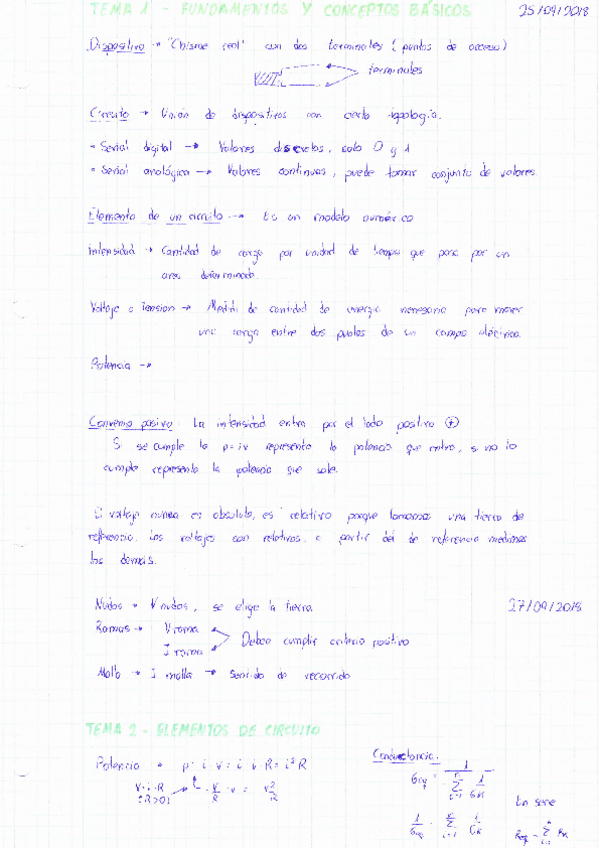 TEMA 1 - FUNDAMENTOS Y CONCEPTOS BÁSICOS 25/09/2018
Dispositivo → "Chisme real" con dos terminales (puntos de acceso)
terminales
Circuito → Unión de dispositivos con cierta topología.
- Señal digital → Valores discretos, solo 0 y 1
- Señal analógica → Valores continuos, puede tomar conjunto de valores.
Elemento de un circuito → Es un modelo numérico
Intensidad → Cantidad de carga por unidad de tiempo que pasa por un
area determinado.
Voltaje o Tension → Medida de cantidad de energia necesaria para mover
una carga entre dos puntos de un campo eléctrico.
Potencia →
Convenio pasivo: La intensidad entra por el lado positivo ⊕
Si se cumple la p=iv representa la potencia que entra, si no lo
cumple representa la potencia que sale.
El voltaje nunca es absoluto, es relativo porque tomamos una tierra de
referencia. Los voltajes son relativos, a partir del de referencia medimos
los demás.
Nudos → V nudos, se elige la tierra 27/09/2018
Ramas → V rama
I rama
Deben cumplir criterio positivo
Malla → I malla → Sentido de recorrido
TEMA 2 - ELEMENTOS DE CIRCUITO
Potencia → p = i · v = i · i · R = i² R
V = i · R
v/R · v = v²/R
Conductancia:
1
En serie